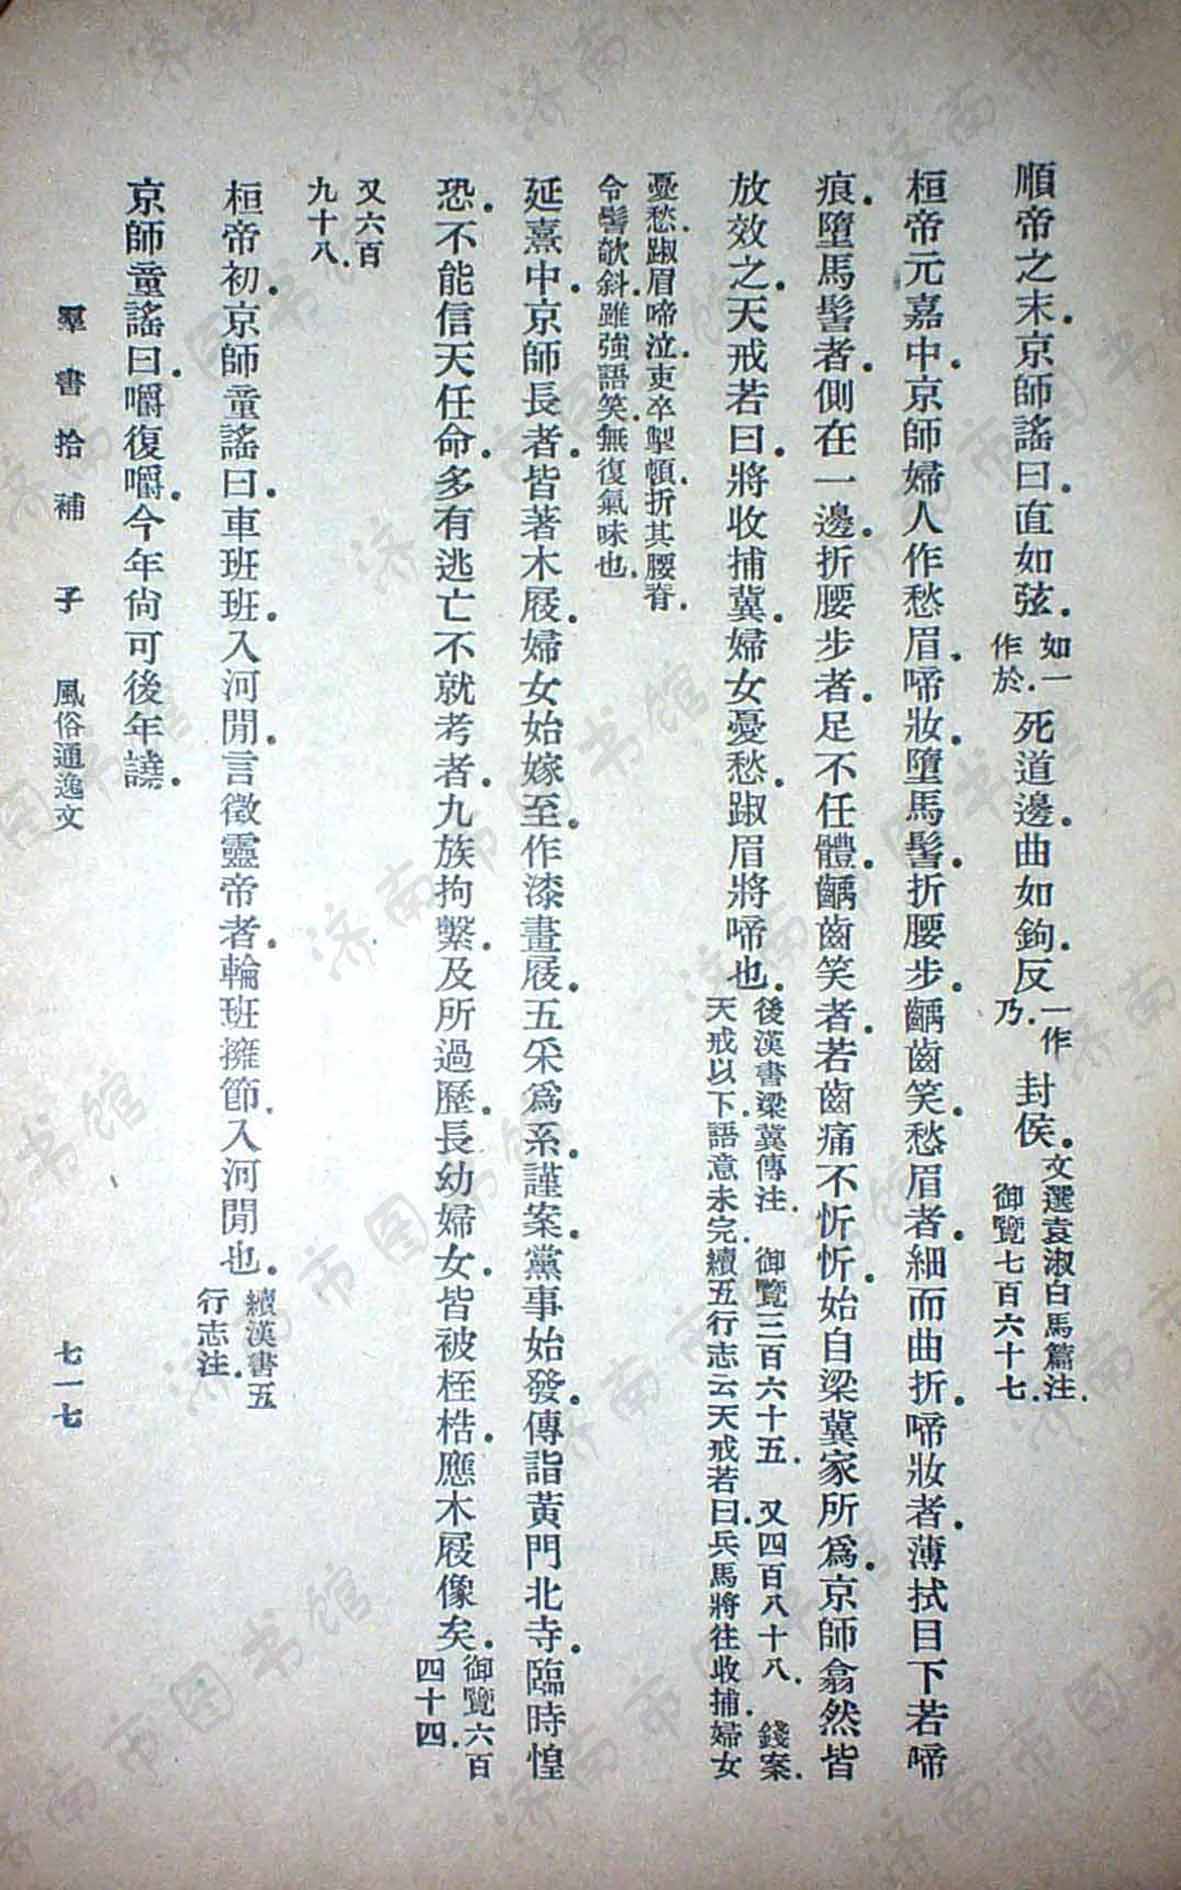 順帝之末．京師謠曰．直如弦．如一作於．死道邊．曲如鉤．反一作乃．封侯．文選袁淑白馬篇注．御覽七百六十七．
桓帝元嘉中．京師婦人作愁眉．啼妝．墮馬髻．折腰步．齲齒笑．愁眉者．細而曲折．啼妝者．薄拭目下若啼
痕．墮馬髻者．側在一邊．折腰步者．足不任體．齲齒笑者．若齒痛不忻忻．始自梁冀家所爲．京師翕然皆
放效之．天戒若曰．將收捕冀．婦女憂愁．踧眉將啼也．後漢書梁冀傳注．御覽三百六十五．又四百八十八．錢案．天戒以下．語意未完．續五行志云．天戒若曰．兵馬將往收捕．婦女
憂愁．踧眉啼泣．吏卒掣頓．折其腰脊．令髻欹斜．雖強語笑．無復氣味也．
延熹中．京師長者．皆著木屐．婦女始嫁．至作漆畫屐．五采爲系．謹案．黨事始發．傳詣黃門北寺．臨時惶
恐．不能信天任命．多有逃亡不就考者．九族拘繫．及所過歷．長幼婦女．皆被桎梏．應木屐像矣．御覽六百四十四．
又六百九十八．
桓帝初．京師童謠曰．車班班．入河閒．言徵靈帝者．輪班擁節．入河閒也．續漢書五行志注．
京師童謠曰．嚼復嚼．今年尙可後年譊．
羣書拾補　子　風俗通逸文　七一七
济南市图书馆